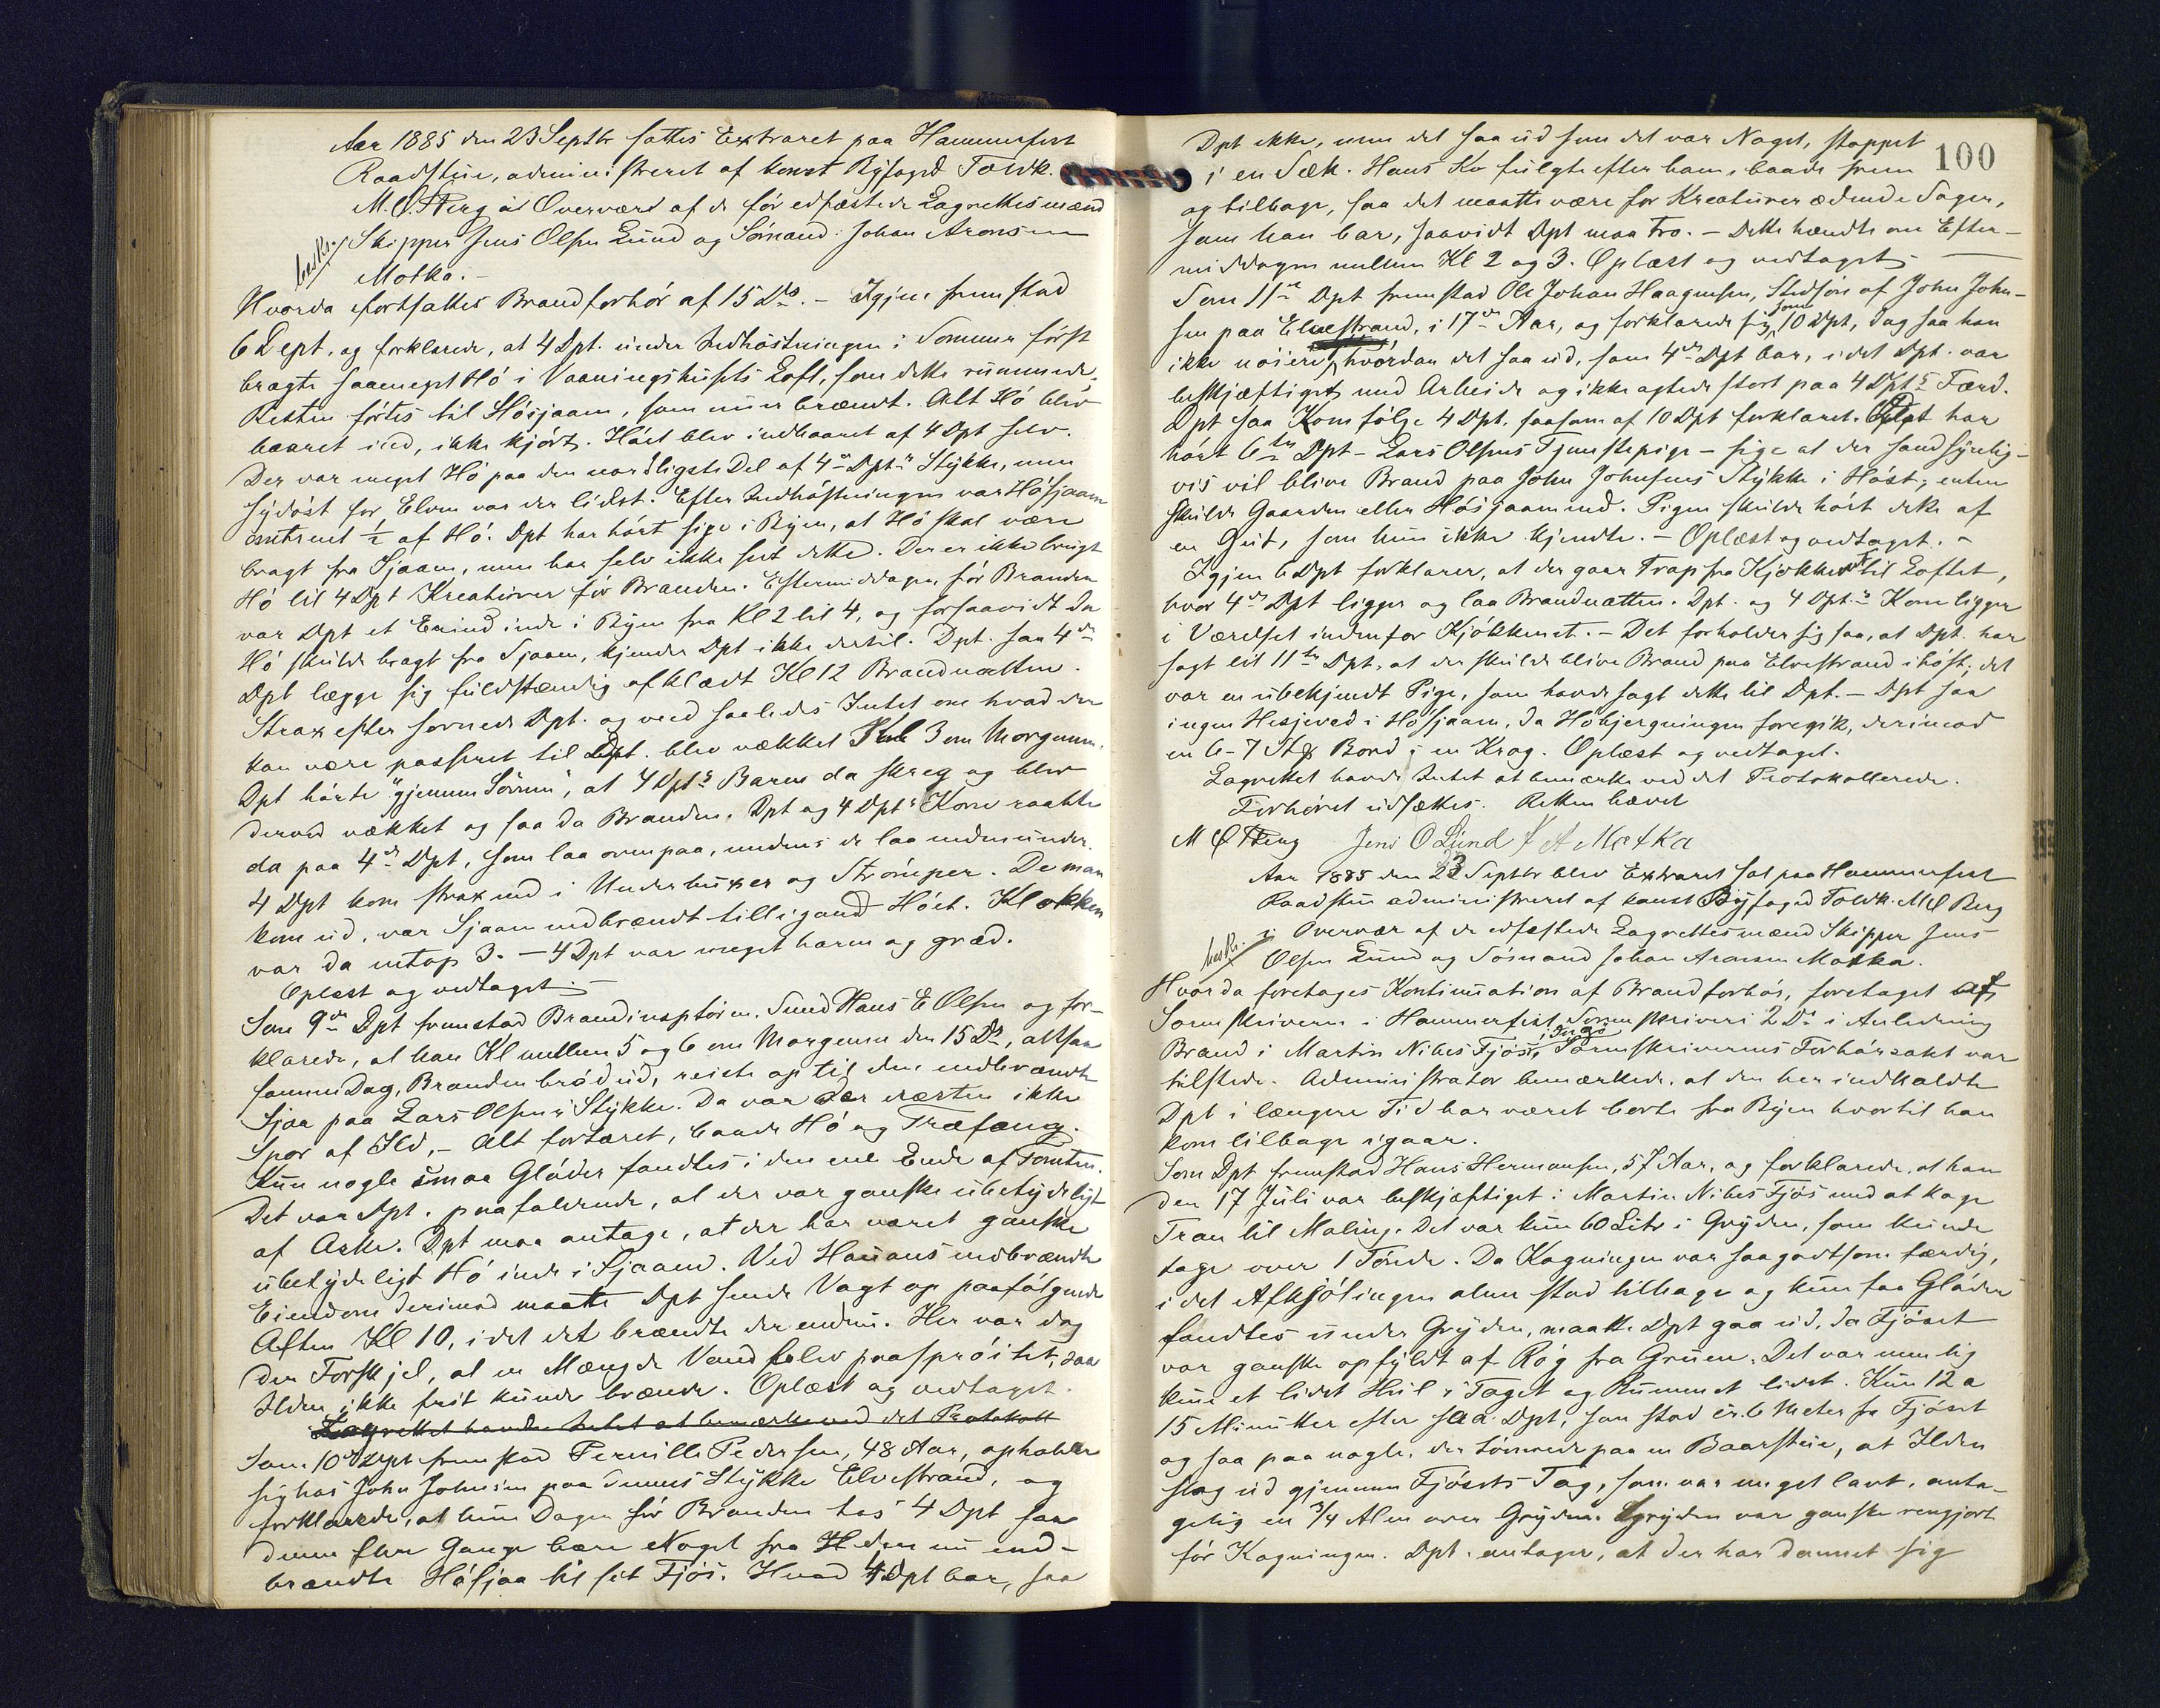 Aar 1885 den 23 Septbr sattes Extraret paa Hammerfest
Raadstue, administreret af konst Byfoged Toldk.
M. Ø. Berg i Overvær af de før edfæstede Lagrettesmænd
Skipper Jens Olsen Lund og Sömand Johan Aronsen
Motka. –
beskr.
Hvorda fortsattes Brandforhör af 15 Ds. – Igjen fremstod
6 Dept. og forklarede, at 4 Dpt. under Indhöstningen i Sommer först
bragte saameget Hö i Vaaningshusets Loft, som dette rummede.
Resten förtes til Hösjaaen, som nu er brændt. Alt Hö blev
baaret ind, ikke kjört. Höet blev indbaaret af 4 Dpt selv.
Der var meget Hö paa den nordligste Del af 4de Dpts Stykke, men
sydöst for Elven var der lidet. Efter Indhöstningen var Hösjaaen
omtrent ½ af Hö. Dpt har hört sige i Byen, at Hö skal være
bragt fra Sjaaen, men har selv ikke seet dette. Der er ikke brugt
Hö til 4 Dpt Kreaturer för Branden. Eftermiddagen för Branden
var Dpt et Erind inde i Byen fra Kl 2 til 4, og forsaavidt da
Hö skulde bragt fra Sjaaen, kjender Dpt ikke dertil. Dpt. saa 4de
Dpt lægge sig fuldstændig afklædt Kl 12 Brandnatten.
Strax efter sovnede Dpt. og veed saaledes Intet om hvad der
kan være passeret til Dpt. blev vækket Kl 3 om Morgenen.
Dpt hörte "gjennem Sövnen", at 4 Dpts Barn da skreg og blev
derved vækket og saa da Branden. Dpt og 4 Dpts Kone raabte
da paa 4de Dpt, som laa ovenpaa, medens de laa nedenunder.
4 Dpt kom strax ned i Underbuxer og Strömper. Da man
kom ud, var Sjaaen nedbrændt tilligemed Höet. Klokken
var da netop 3. – 4 Dpt var meget harm og græd.
Oplæst og vedtaget. –
Som 9de Dpt fremstod Brandinspektören, Smed Hans E Olsen og for-
klarede, at han Kl mellem 5 og 6 om Morgenen den 15 Ds, altsaa
samme Dag, Branden bröd ud, reiste op til den nedbrændte
Sjaa paa Lars Olsens Stykke. Da var der næsten ikke
Spor af Ild, – Alt fortæret, baade Hö og Træfang.
Kun nogle smaa Glöder fandtes i den ene Ende af Tomten.
Det var Dpt. paafaldende, at der var ganske ubetydeligt
af Aske. Dpt maa antage, at der har været ganske
ubetydeligt Hö inde i Sjaaen. Ved Hauans nedbrændte
Eiendom derimod maatte Dpt sende Vagt op paafölgende
Aften Kl 10, idet det brændte der endnu. Her var dog
den Forskjel, at en Mængde Vand blev paaspröitet, saa
Ilden ikke frit kunde brænde. Oplæst og vedtaget.
Lagrettet havde Intet at bemærke ved det Protokoll
Som 10de Dpt fremstod Pernille Pedersen, 48 Aar, opholder
sig hos John Johnsen paa dennes Stykke Elvestrand, og
forklarede, at hun Dagen för Branden hos 4 Dpt saa
denne flere Gange bære Noget fra den nu ned-
brændte Hösjaa til sit Fjös. Hvad 4 Dpt bar, saa
100
Dpt ikke, men det saa ud som det var Noget, stoppet
i en Sæk. Hans Ko fulgte efter ham, baade frem
og tilbage, saa det maatte være for Kreaturer ædende Sager,
som han bar, saavidt Dpt maa tro. – Dette hændte om Efter-
middagen mellem Kl 2 og 3. Oplæst og vedtaget. –
Som 11te Dpt fremstod Ole Johan Haagensen, Stedsön af John John-
sen paa Elvestrand, i 17de Aar, og forklarede sig som 10 Dpt, dog saa han
ikke nöiere, hvordan det saa ud, som 4de Dpt bar, idet Dpt. var
beskjæftiget med Arbeide og ikke agtede stort paa 4 Dpts Færd.
Dpt saa Koen fölge 4 Dpt. saasom af 10 Dpt forklaret. Dpt har
hört 6te Dpt – Lars Olsens Tjenestepige – sige at der sandsynlig-
vis vil blive Brand paa John Johnsens Stykke i Höst, enten
skulde Gaarden eller Hösjaaen ned. Pigen skulde hört dette af
en Gut, som hun ikke kjendte. – Oplæst og vedtaget. –
Igjen 6 Dpt forklarer, at der gaar Trap fra Kjökkenet til Loftet,
hvor 4de Dpt ligger og laa Brandnatten. Dpt. og 4 Dpts Kone ligger
i Værelset indenfor Kjökkenet. – Det forholder sig saa, at Dpt. har
sagt til 11te Dpt. at der skulde blive Brand paa Elvestrand ihöst; det
var en ubekjendt Pige, som havde sagt dette til Dpt. – Dpt saa
ingen Hesjeved i Hösjaaen, da Höbjergningen foregik, derimod
en 6-7 Stk Bord i en Krog. Oplæst og vedtaget.
Lagrettet havde Intet at bemærke ved det Protokollerede.
Forhöret udsættes. Retten hævet
M Ø Berg Jens O Lund J A Motka
Aar 1885 den 23 Septbr blev Extraret sat paa Hammerfest
Raadstue administreret af konst Byfoged Toldk. M Ø Berg
i Overvær af de edfæstede Lagrettesmænd Skipper Jens
Olsen Lund og Sömand Johan Aronsen Motka.
beskr.
Hvorda foretages Kontinuation af Brandforhör, foretaget af
Sorenskriveren i Hammerfest Sorenskriveri 2 Ds i Anledning
Brand i Martin Nibes Fjös i Ingö. Sorenskriverens Forhörsakt var
tilstede. Administrator bemærkede, at den her indkaldte
Dpt i længere Tid har været borte fra Byen hvortil han
kom tilbage igaar.
Som Dpt fremstod Hans Hermansen, 57 Aar, og forklarede, at han
den 17 Juli var beskjæftiget i Martin Nibes Fjös med at koge
Tran til Maling. Det var kun 60 Liter i Gryden, som kunde
tage over 1 Tönde. Da Kogningen var saagodtsom færdig,
idet Afkjölingen alene stod tilbage og kun faa Glöder
fandtes under Gryden, maatte Dpt gaa ud, da Fjöset
var ganske opfyldt af Rög fra Gruen. Det var nemlig
kun et lidet Hul i Taget og Rummet lidet. Kun 12 a
15 Minutter efter saa Dpt, som stod cr. 6 Meter fra Fjöset
og saa paa nogle, der tömrede paa en Baarstue, at Ilden
slog ud gjennem Fjösets Tag, som var meget lavt, anta-
gelig en 3/4 Alen over Gryden. Gryden var ganske rengjort
för Kogningen. Dpt. antager, at der har dannet sig